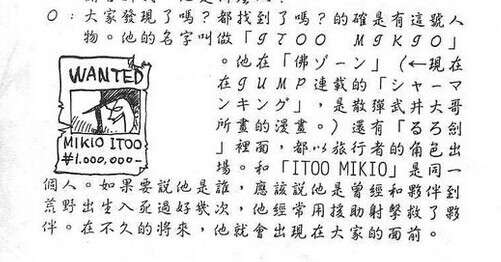 O：大家發現了嗎？都找到了嗎？的確是有這號人
物。他的名字叫做「ITOO MIKIO」
。他在「佛ゾーン」（←現在
在JUMP連載的「シャーマ
ンキング」，是散彈武井大哥
所畫的漫畫。）還有「るろ剣
」裡面，都以旅行者的角色出
場。和「ITOO MIKIO」是同一
個人。如果要說他是誰，應該說他是曾經和夥伴到
荒野出生入死過好幾次，他經常用援助射擊救了夥
伴。在不久的將來，他就會出現在大家的面前。
WANTED
MIKIO ITOO
¥1.000,000-